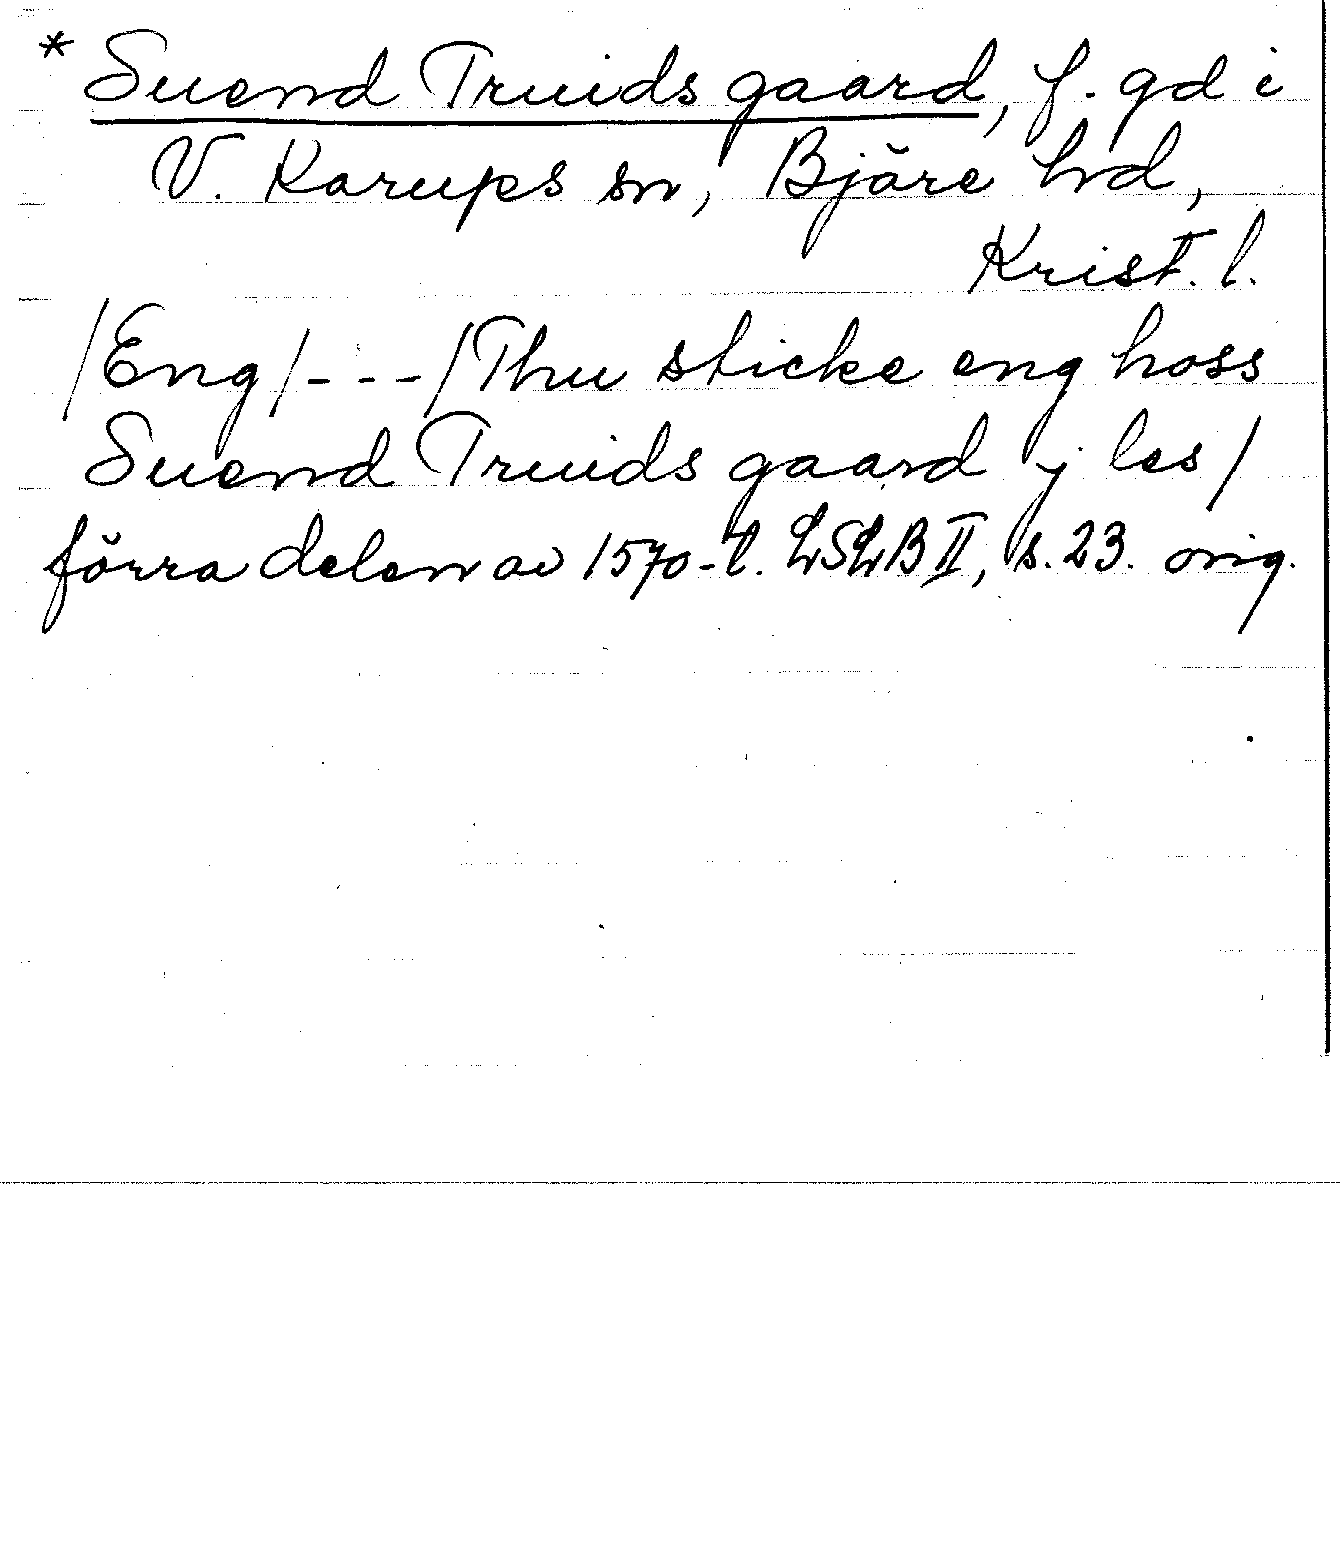 * Suend Truids gaard, f. gd i
V. Karups sn, Bjäre hd,
Krist. l.
/Eng/---/Thu sticke eng hoss
Suend Truids gaard y les/
förra delen av 1570-t. LSLB II, s. 23. orig.